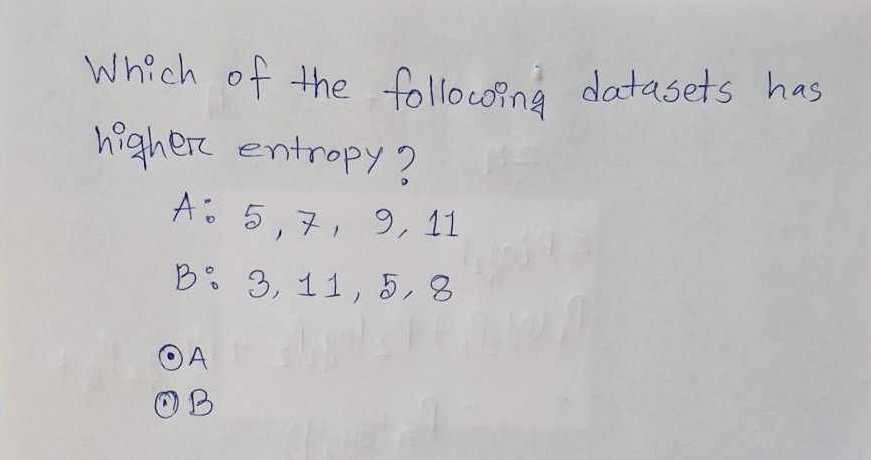 Which of the following datasets has
higher entropy?
A: 5, 7, 9, 11
B: 3, 11, 5, 8
A
B